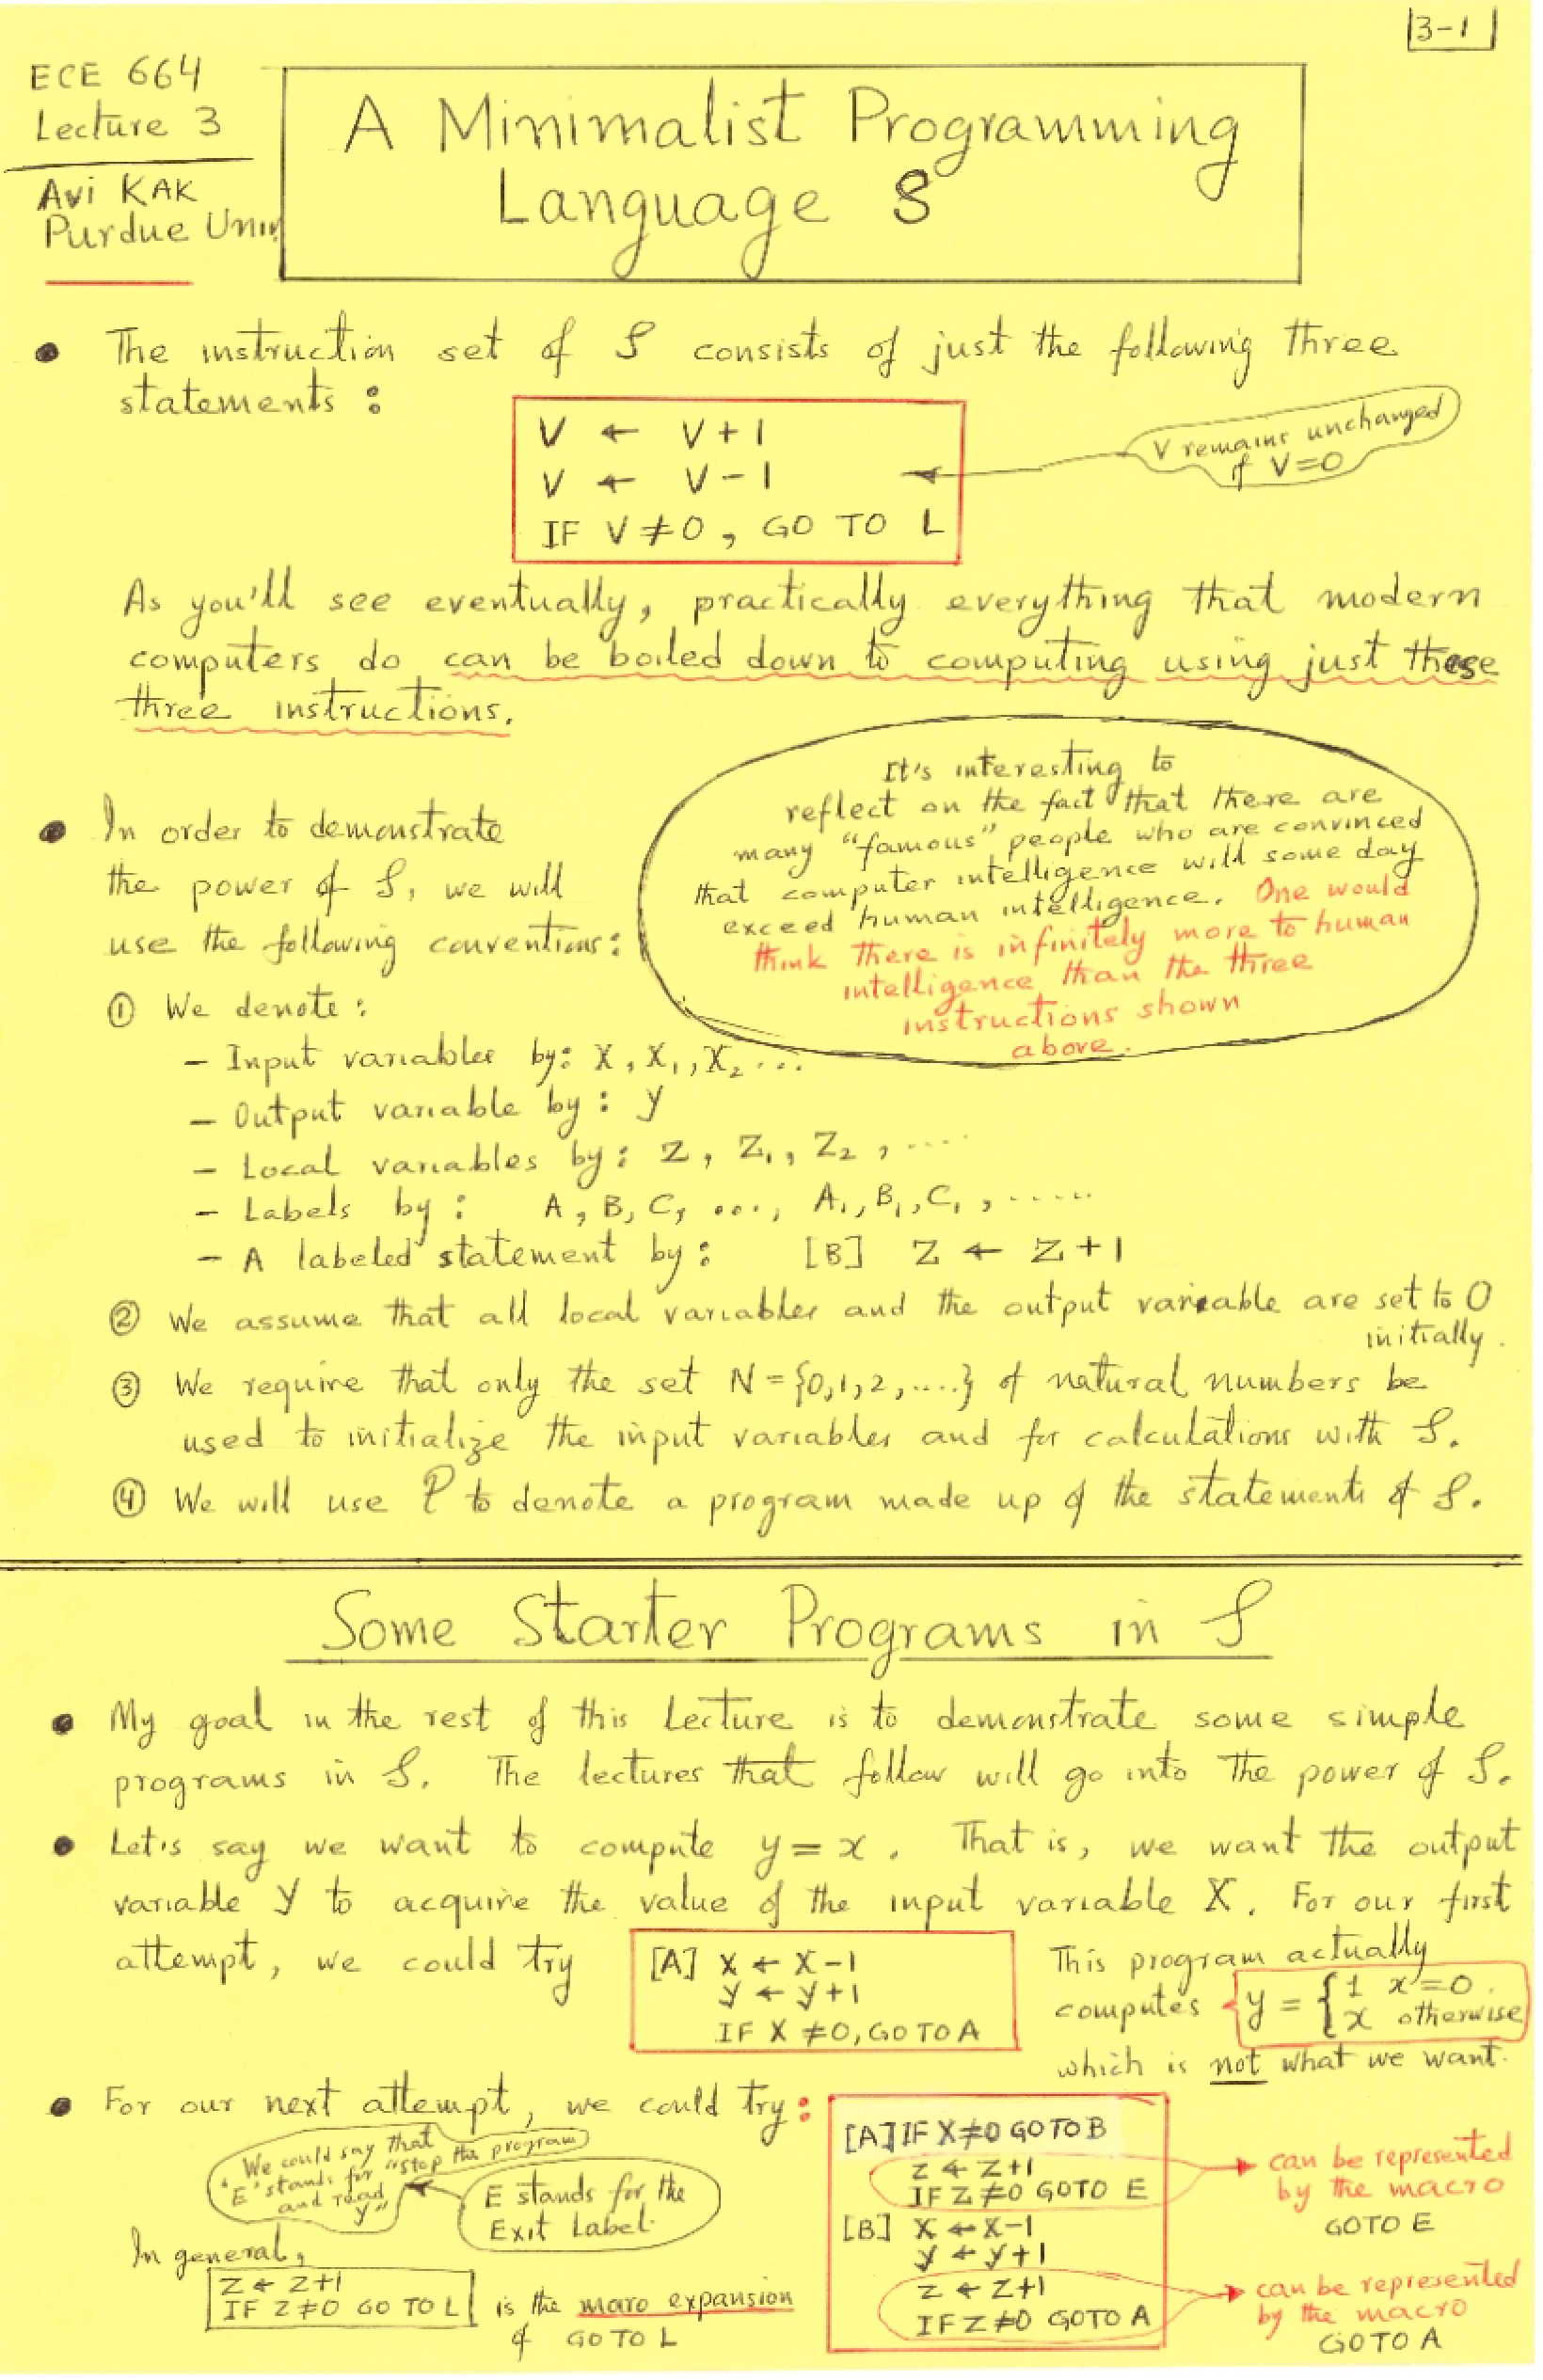 3-1
ECE 664
Lecture 3
Avi KAK
Purdue Univ
A Minimalist Programming
Language S
• The instruction set of S consists of just the following three
statements :
V ← V+1
V ← V-1
IF V≠0, GO TO L
V remains unchanged
if V=0
As you'll see eventually, practically everything that modern
computers do can be boiled down to computing using just these
three instructions.
It's interesting to
reflect on the fact that there are
many "famous" people who are convinced
that computer intelligence will some day
exceed human intelligence. One would
think there is infinitely more to human
intelligence than the three
instructions shown
above.
• In order to demonstrate
the power of S, we will
use the following conventions:
① We denote:
– Input variables by: X, X₁, X₂ ...
– Output variable by: Y
– Local variables by: Z, Z₁, Z₂, ....
– Labels by: A, B, C, ..., A₁, B₁, C₁, .....
– A labeled statement by: [B] Z ← Z+1
② We assume that all local variables and the output variable are set to 0
initially.
③ We require that only the set N = {0,1,2,....} of natural numbers be
used to initialize the input variables and for calculations with S.
④ We will use P to denote a program made up of the statements of S.
Some Starter Programs in S
• My goal in the rest of this Lecture is to demonstrate some simple
programs in S. The lectures that follow will go into the power of S.
• Let's say we want to compute y = x. That is, we want the output
variable Y to acquire the value of the input variable X. For our first
attempt, we could try
[A] X ← X-1
Y ← Y+1
IF X ≠0, GO TO A
This program actually
computes y = { 1 x=0.
x otherwise
which is not what we want.
• For our next attempt, we could try:
[A] IF X≠0 GO TO B
Z ← Z+1
IF Z≠0 GOTO E
[B] X ← X-1
Y ← Y+1
Z ← Z+1
IF Z≠0 GOTO A
can be represented
by the macro
GOTO E
can be represented
by the macro
GOTO A
We could say that
'E' stands for "stop the program
and read
Y"
E stands for the
Exit Label.
In general,
Z ← Z+1
IF Z≠0 GO TO L
is the maro expansion
of GO TO L